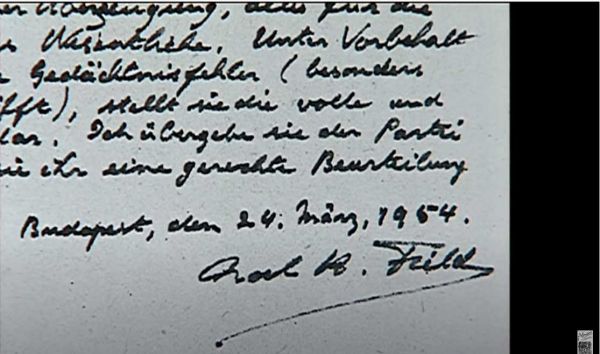 Überzeugung, alles für die
Wesentliche. Unter Vorbehalt
Gedächtnisfehler (besonders
ifft), stellt sie die volle und
dar. Ich übergebe sie der Partei
sie ihr eine gerechte Beurteilung
Budapest, den 24. März, 1954.
Noel H. Field